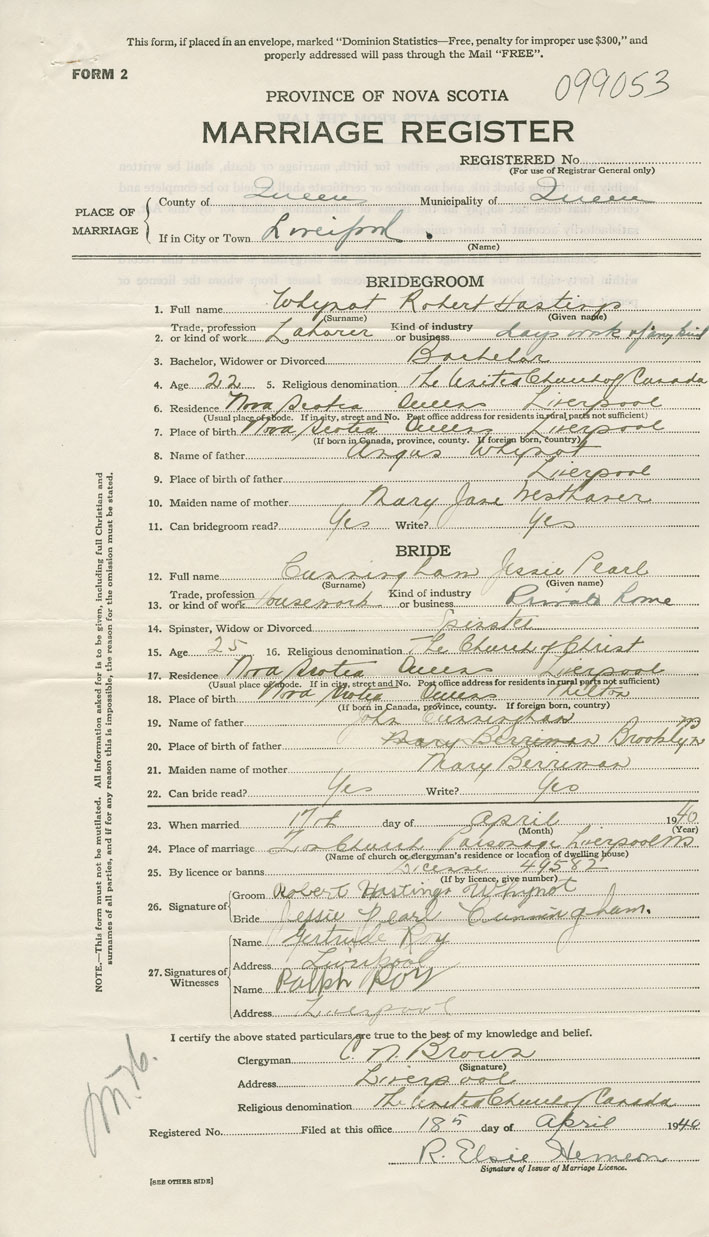 This form, if placed in an envelope, marked "Dominion Statistics—Free, penalty for improper use $300," and
properly addressed will pass through the Mail "FREE".
FORM 2
099053
PROVINCE OF NOVA SCOTIA
MARRIAGE REGISTER
REGISTERED No.
(For use of Registrar General only)
PLACE OF MARRIAGE
County of Queens Municipality of Queens
If in City or Town Liverpool
(Name)
BRIDEGROOM
1. Full name Whynot Robert Hastings
(Surname) (Given name)
2. Trade, profession or kind of work Laborer Kind of industry or business days work of any kind
3. Bachelor, Widower or Divorced Bachelor
4. Age 22 5. Religious denomination The United Church of Canada
6. Residence Nova Scotia Queens Liverpool
(Usual place of abode. If in city, street and No. Post office address for residents in rural parts not sufficient)
7. Place of birth Nova Scotia Queens Liverpool
(If born in Canada, province, county. If foreign born, country)
8. Name of father Angus Whynot
9. Place of birth of father Liverpool
10. Maiden name of mother Mary Jane Westhaver
11. Can bridegroom read? Yes Write? Yes
BRIDE
12. Full name Cunningham Jessie Pearl
(Surname) (Given name)
13. Trade, profession or kind of work Housework Kind of industry or business Private home
14. Spinster, Widow or Divorced Spinster
15. Age 25 16. Religious denomination The Church of Christ
17. Residence Nova Scotia Queens Liverpool
(Usual place of abode. If in city, street and No. Post office address for residents in rural parts not sufficient)
18. Place of birth Nova Scotia Queens Milton
(If born in Canada, province, county. If foreign born, country)
19. Name of father John Cunningham
20. Place of birth of father Mary Berriman Brooklyn
21. Maiden name of mother Mary Berriman
22. Can bride read? Yes Write? Yes
23. When married 17th day of April 1940
(Month) (Year)
24. Place of marriage Zion Church Parsonage Liverpool NS
(Name of church or clergyman's residence or location of dwelling house)
25. By licence or banns License 49582
(If by licence, give number)
26. Signature of
Groom Robert Hastings Whynot
Bride Jessie Pearl Cunningham.
27. Signatures of Witnesses
Name Gertrude Roy
Address Liverpool
Name Ralph Roy
Address Liverpool
I certify the above stated particulars are true to the best of my knowledge and belief.
Clergyman C. N. Brown
(Signature)
Address Liverpool
Religious denomination The United Church of Canada
Registered No. Filed at this office 18th day of April 1940
R. Elsie Hemeon
Signature of Issuer of Marriage Licence.
[SEE OTHER SIDE]
NOTE.—This form must not be mutilated. All information asked for is to be given, including full Christian and
surnames of all parties, and if for any reason this is impossible, the reason for the omission must be stated.